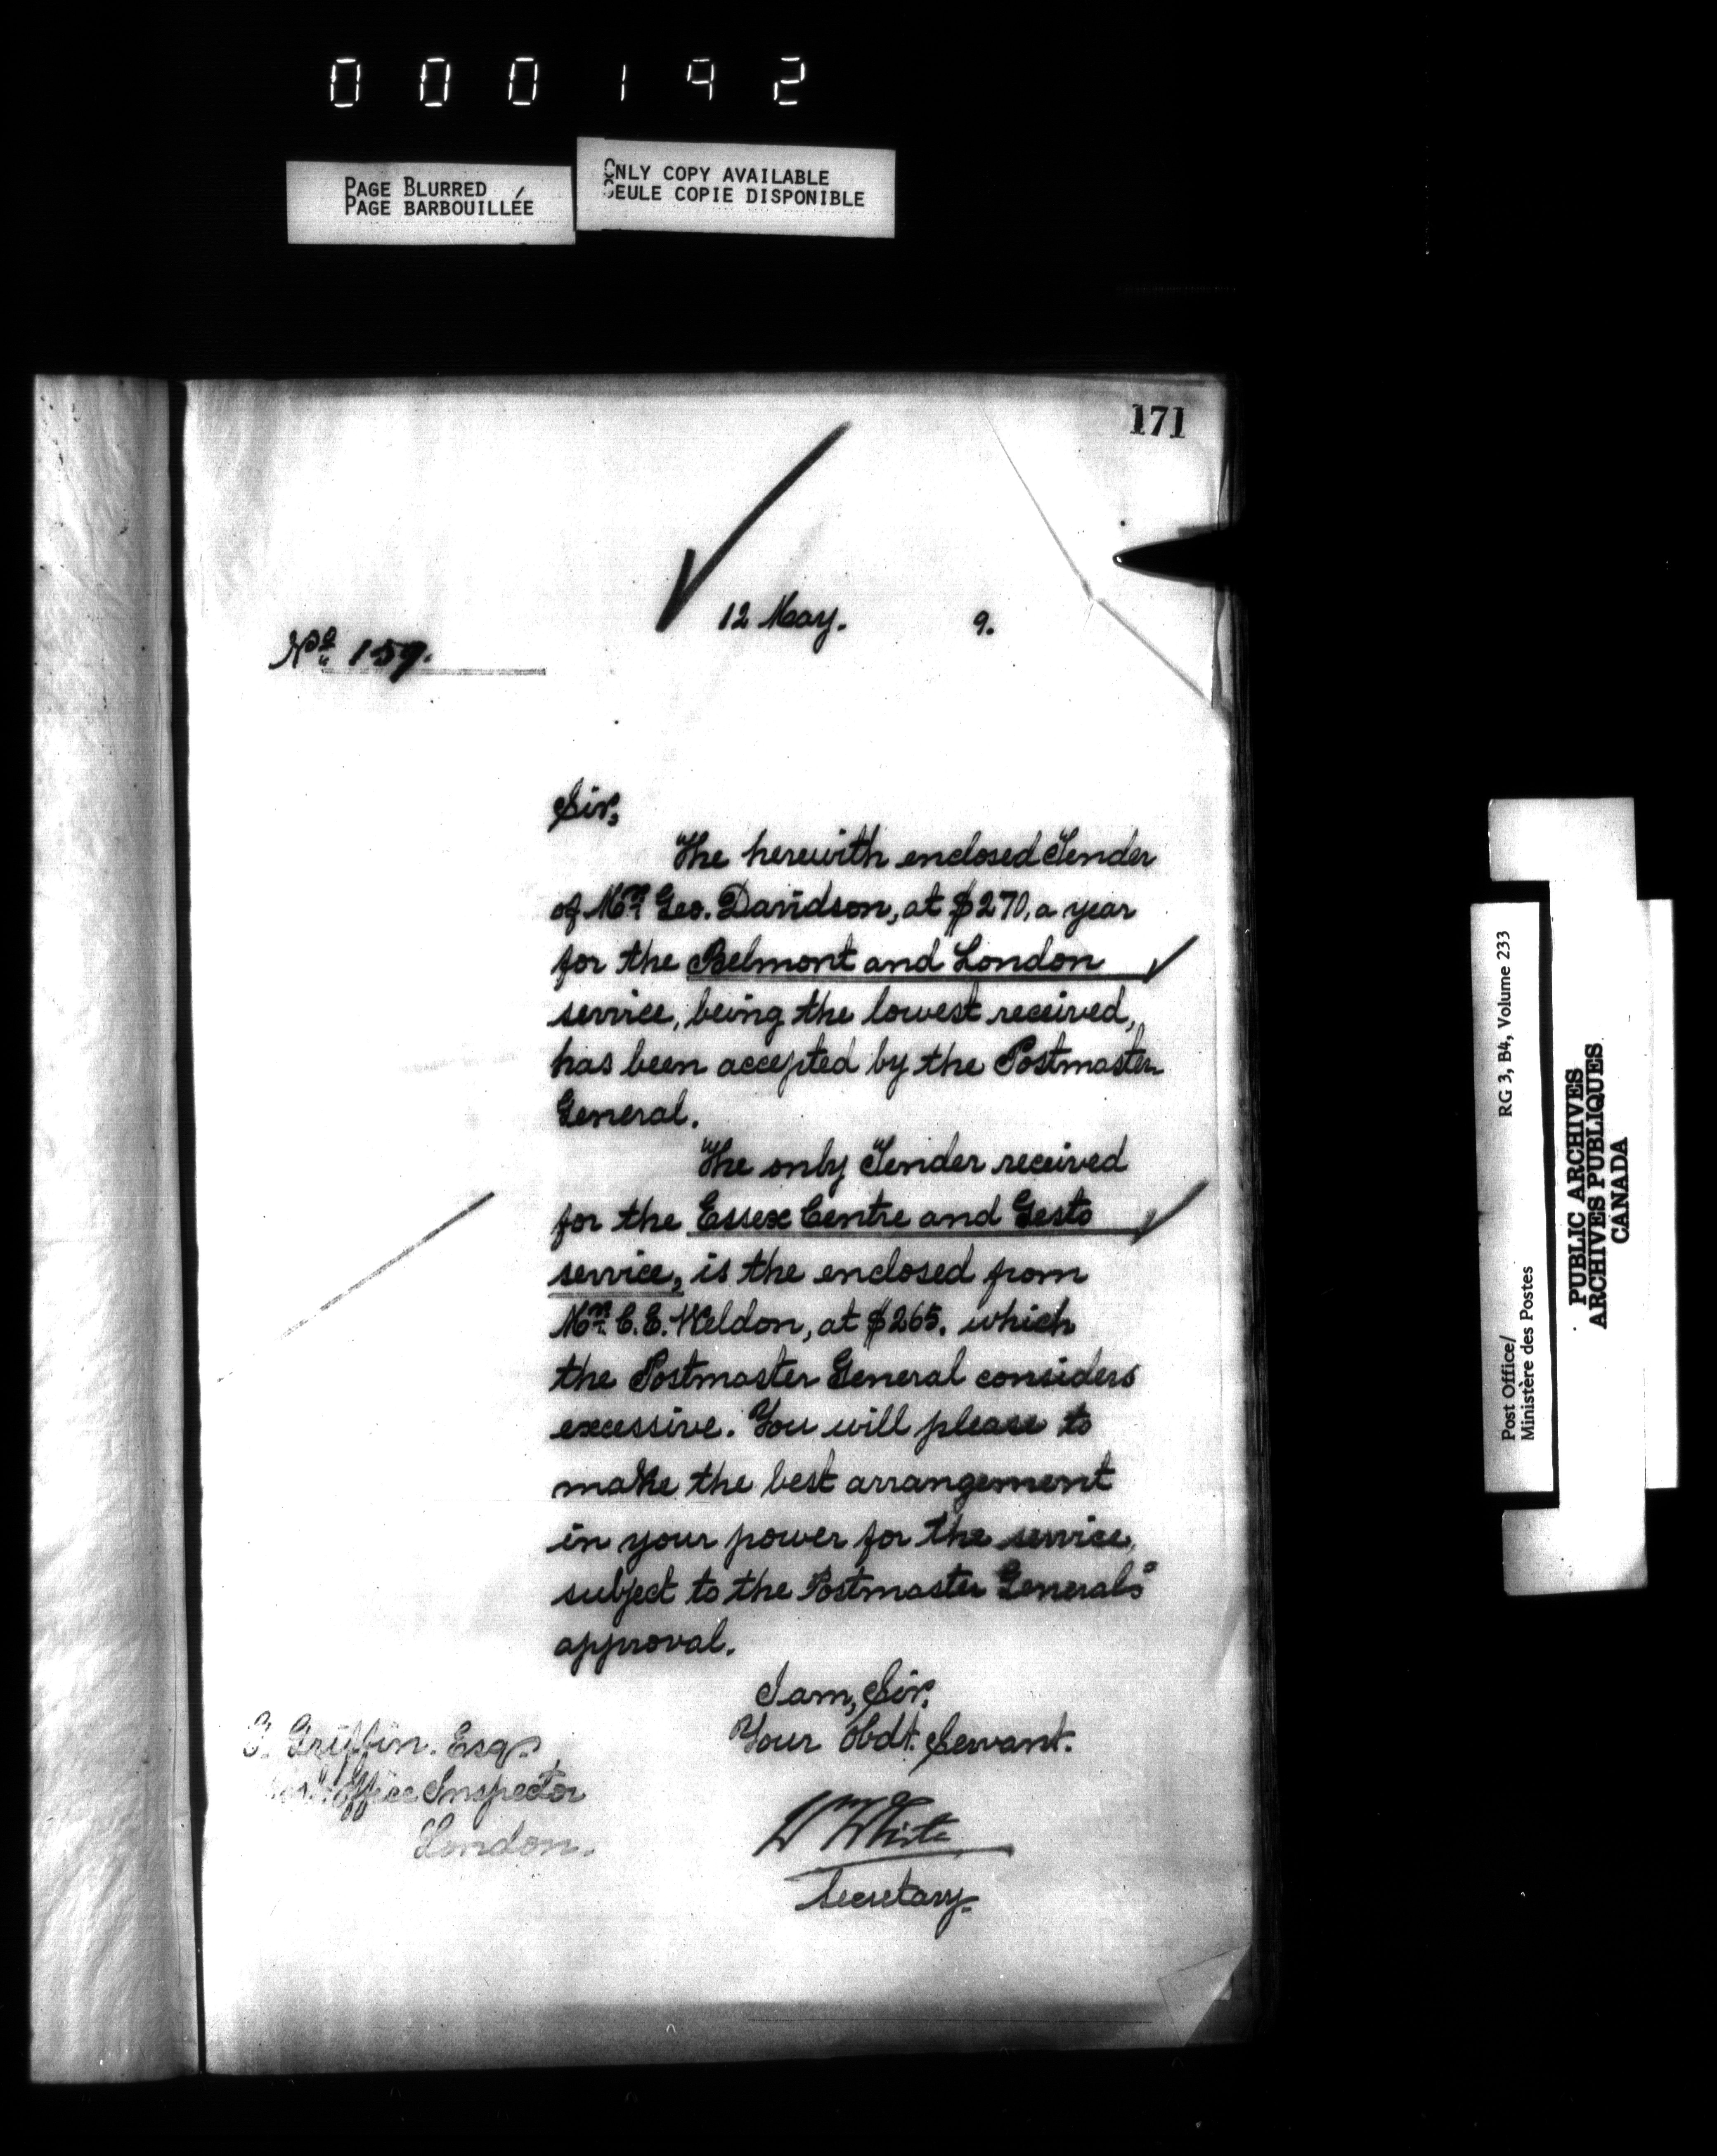 000192
PAGE BLURRED
PAGE BARBOUILLÉE
ONLY COPY AVAILABLE
SEULE COPIE DISPONIBLE
171
12 May. 9.
No. 159.
Sir,
The herewith enclosed Tender
of Mr. Geo. Davidson, at $270, a year
for the Belmont and London
service, being the lowest received,
has been accepted by the Postmaster
General.
The only Tender received
for the Essex Centre and Gesto
service, is the enclosed from
Mr. C. E. Weldon, at $265. which
the Postmaster General considers
excessive. You will please to
make the best arrangement
in your power for the service,
subject to the Postmaster General's
approval.
I am, Sir,
Your Obdt. Servant.
Wm White
Secretary.
Griffin. Esq.
Office Inspector
London.
Post Office/ RG 3, B4, Volume 233
Ministère des Postes
PUBLIC ARCHIVES
ARCHIVES PUBLIQUES
CANADA